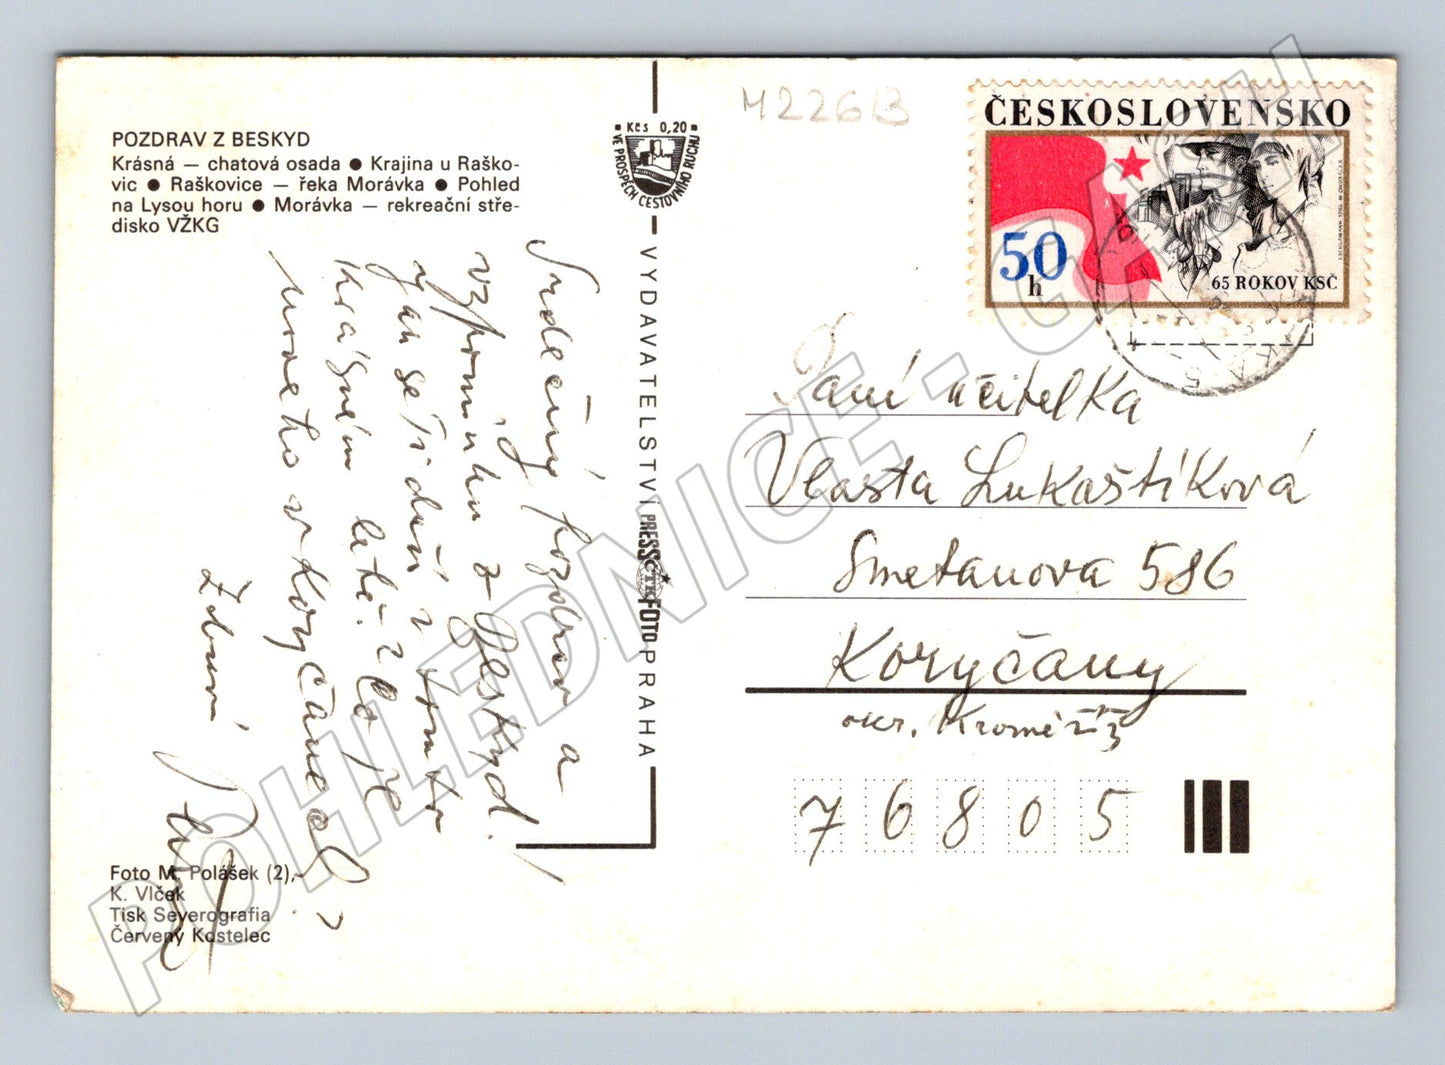 M226B
POZDRAV Z BESKYD
Krásná — chatová osada ● Krajina u Raško-
vic ● Raškovice — řeka Morávka ● Pohled
na Lysou horu ● Morávka — rekreační stře-
disko VŽKG
Kčs 0,20
VE PROSPĚCH CESTOVNÍHO RUCHU
ČESKOSLOVENSKO
50
h
65 ROKOV KSČ
Srdečný pozdrav a
vzpomínku z Beskyd!
se daří v
krásném létě?
mnoho v Koryčanech
VYDAVATELSTVÍ PRESSFOTO PRAHA
ČTK
Paní učitelka
Vlasta Lukaštíková
Smetanova 586
Koryčany
okr. Kroměříž
76805
Foto M. Polášek (2),
K. Vlček
Tisk Severografia
Červený Kostelec
POHLEDNICE - CASH